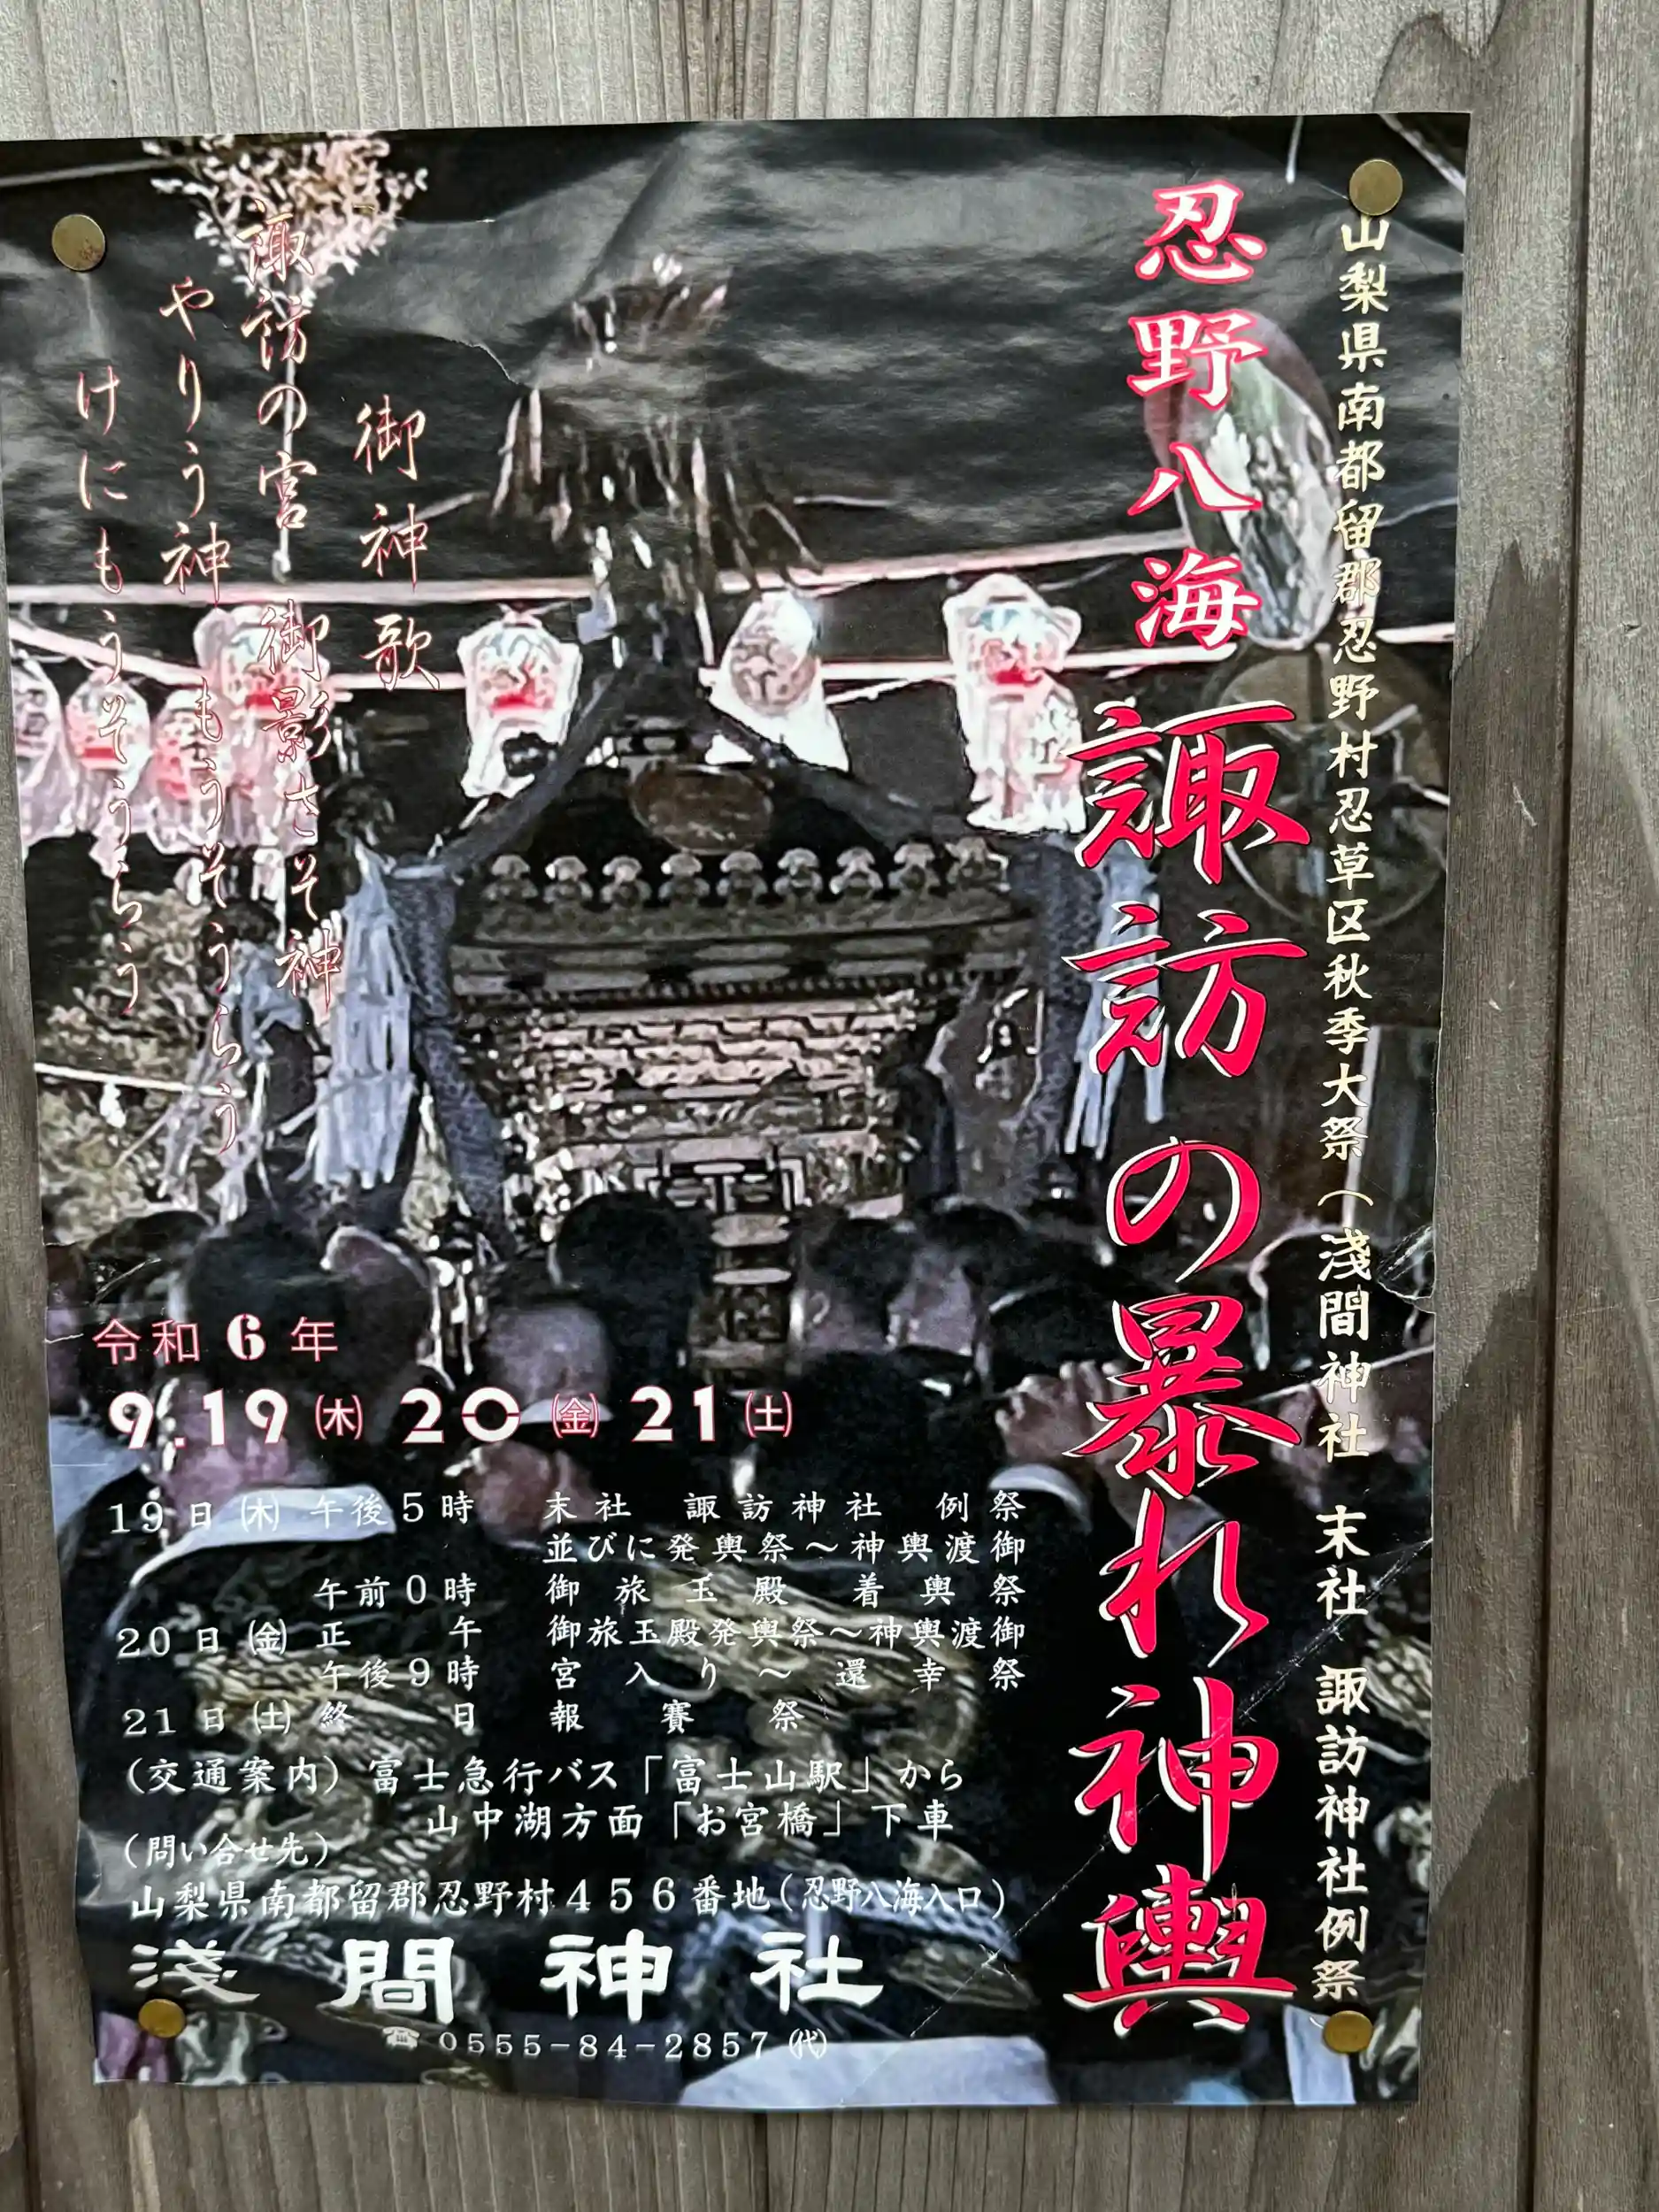 山梨県南都留郡忍野村忍草区秋季大祭（淺間神社 末社 諏訪神社例祭
忍野八海 諏訪の暴れ神輿
御神歌
諏訪の宮 御影さそ神
やりう神 もうそうらう
けにもうそうらう
令和6年
9.19㈭ 20㈮ 21㈯
19日㈭ 午後5時 末社 諏訪神社 例祭
並びに発輿祭～神輿渡御
午前0時 御旅玉殿着輿祭
20日㈮ 正午 御旅玉殿発輿祭～神輿渡御
午後9時 宮入り～還幸祭
21日㈯ 終日 報賽祭
（交通案内）富士急行バス「富士山駅」から
山中湖方面「お宮橋」下車
（問い合せ先）
山梨県南都留郡忍野村４５６番地（忍野八海入口）
淺間神社
☎ 0555-84-2857 ㈹